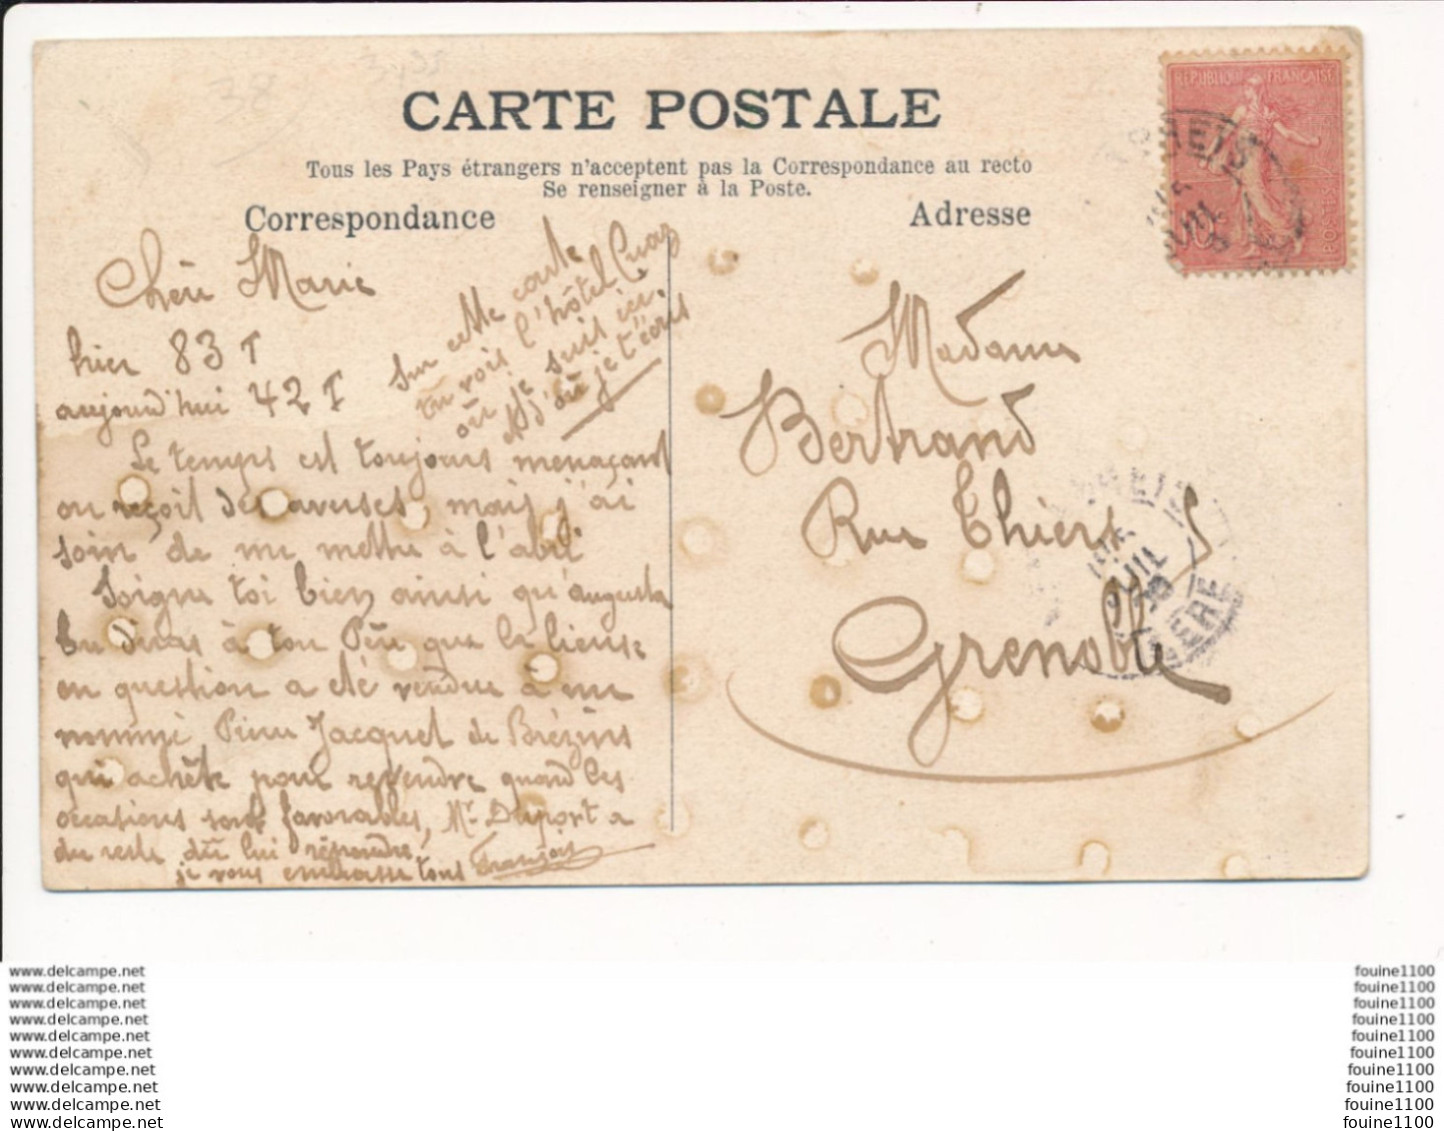 CARTE POSTALE
Tous les Pays étrangers n'acceptent pas la Correspondance au recto
Se renseigner à la Poste.
Correspondance
Adresse
REPUBLIQUE FRANÇAISE
POSTES
Chère Marie
hier 83 T
aujourd'hui 42 T
Sur cette carte
tu vois l'hôtel Cuaz
où je suis ici.
et d'où je t'écris
Le temps est toujours menaçant
on reçoit des averses, mais j'ai
soin de me mettre à l'abri
Soigne toi bien ainsi qu'augusta
tu diras à ton Père que la lieuse
en question a été vendue à un
nommé Pierre Jacquet de Brézins
qui achète pour revendre quand les
occasions sont favorables, Mr Duport a
du reste dû lui répondre.
je vous embrasse tous François
Madame
Bertrand
Rue Thiers
Grenoble
ISERE
www.delcampe.net
www.delcampe.net
www.delcampe.net
www.delcampe.net
www.delcampe.net
www.delcampe.net
www.delcampe.net
www.delcampe.net
www.delcampe.net
www.delcampe.net
fouine1100
fouine1100
fouine1100
fouine1100
fouine1100
fouine1100
fouine1100
fouine1100
fouine1100
fouine1100